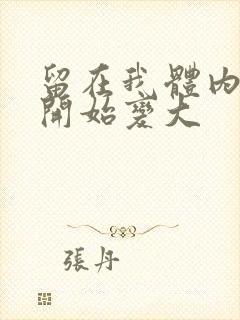 留在我體內
開始變大
張丹